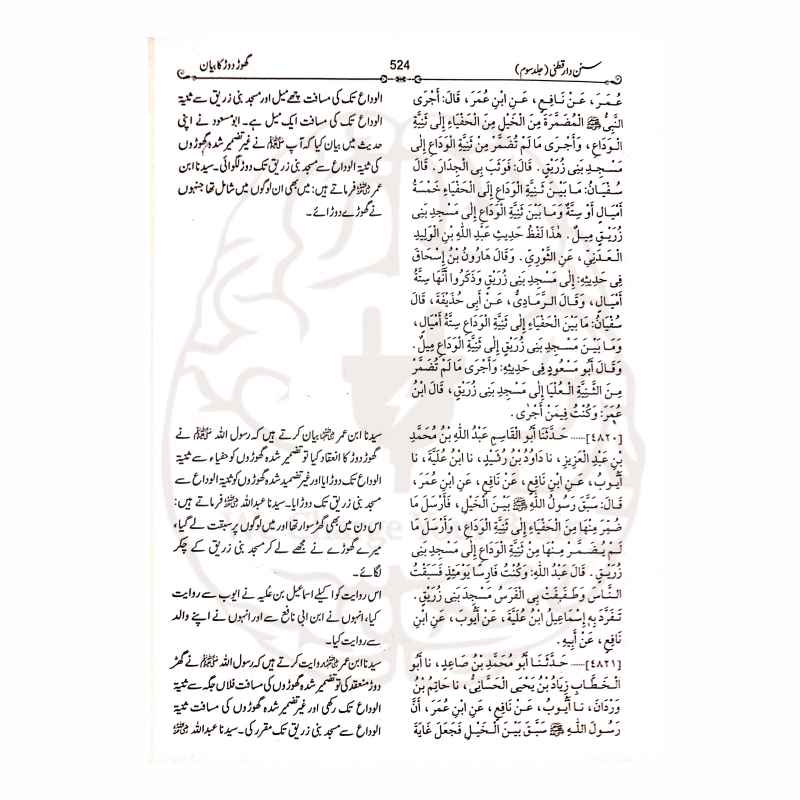 سنن دار قطنی (جلد سوم)
524
گھوڑ دوڑ کا بیان
عُمَرَ، عَنْ نَافِعٍ، عَنِ ابْنِ عُمَرَ، قَالَ: أَجْرَى
النَّبِيُّ ﷺ الْمُضَمَّرَةَ مِنَ الْخَيْلِ مِنَ الْحَفْيَاءِ إِلٰى ثَنِيَّةِ
الْوَدَاعِ، وَأَجْرَى مَا لَمْ تُضَمَّرْ مِنْ ثَنِيَّةِ الْوَدَاعِ إِلٰى
مَسْجِدِ بَنِي زُرَيْقٍ. قَالَ: فَوَثَبَ بِي الْجِدَارَ. قَالَ
سُفْيَانُ: مَا بَيْنَ ثَنِيَّةِ الْوَدَاعِ إِلَى الْحَفْيَاءِ خَمْسَةُ
أَمْيَالٍ أَوْ سِتَّةٌ وَمَا بَيْنَ ثَنِيَّةِ الْوَدَاعِ إِلٰى مَسْجِدِ بَنِي
زُرَيْقٍ مِيلٌ. هٰذَا لَفْظُ حَدِيثِ عَبْدِ اللّٰهِ بْنِ الْوَلِيدِ
الْعَدَنِيِّ، عَنِ الثَّوْرِيِّ. وَقَالَ هَارُونُ بْنُ إِسْحَاقَ
فِي حَدِيثِهِ: إِلٰى مَسْجِدِ بَنِي زُرَيْقٍ وَذَكَرُوا أَنَّهَا سِتَّةُ
أَمْيَالٍ، وَقَالَ الرَّمَادِيُّ، عَنْ أَبِي حُذَيْفَةَ، قَالَ
سُفْيَانُ: مَا بَيْنَ الْحَفْيَاءِ إِلٰى ثَنِيَّةِ الْوَدَاعِ سِتَّةُ أَمْيَالٍ،
وَمَا بَيْنَ مَسْجِدِ بَنِي زُرَيْقٍ إِلٰى ثَنِيَّةِ الْوَدَاعِ مِيلٌ.
وَقَالَ أَبُو مَسْعُودٍ فِي حَدِيثِهِ: وَأَجْرَى مَا لَمْ تُضَمَّرْ
مِنَ الثَّنِيَّةِ الْعُلْيَا إِلٰى مَسْجِدِ بَنِي زُرَيْقٍ، قَالَ ابْنُ
عُمَرَ: وَكُنْتُ فِيمَنْ أَجْرٰى.
[٤٨٢٠]..... حَدَّثَنَا أَبُو الْقَاسِمِ عَبْدُ اللّٰهِ بْنُ مُحَمَّدِ
بْنِ عَبْدِ الْعَزِيزِ، نا دَاوُدُ بْنُ رُشَيْدٍ، نا ابْنُ عُلَيَّةَ، نا
أَيُّوبُ، عَنِ ابْنِ نَافِعٍ، عَنْ نَافِعٍ، عَنِ ابْنِ عُمَرَ،
قَالَ: سَبَّقَ رَسُولُ اللّٰهِ ﷺ بَيْنَ الْخَيْلِ، فَأَرْسَلَ مَا
ضُمِّرَ مِنْهَا مِنَ الْحَفْيَاءِ إِلٰى ثَنِيَّةِ الْوَدَاعِ، وَأَرْسَلَ مَا
لَمْ يُضَمَّرْ مِنْهَا مِنْ ثَنِيَّةِ الْوَدَاعِ إِلٰى مَسْجِدِ بَنِي
زُرَيْقٍ. قَالَ عَبْدُ اللّٰهِ: وَكُنْتُ فَارِسًا يَوْمَئِذٍ فَسَبَقْتُ
النَّاسَ وَطَفِقَتْ بِي الْفَرَسُ مَسْجِدَ بَنِي زُرَيْقٍ.
تَفَرَّدَ بِهِ إِسْمَاعِيلُ ابْنُ عُلَيَّةَ، عَنْ أَيُّوبَ، عَنِ ابْنِ
نَافِعٍ، عَنْ أَبِيهِ.
[٤٨٢١]..... حَدَّثَنَا أَبُو مُحَمَّدِ بْنُ صَاعِدٍ، نا أَبُو
الْخَطَّابِ زِيَادُ بْنُ يَحْيَى الْحَسَّانِيُّ، نا حَاتِمُ بْنُ
وَرْدَانَ، نا أَيُّوبُ، عَنْ نَافِعٍ، عَنِ ابْنِ عُمَرَ، أَنَّ
رَسُولَ اللّٰهِ ﷺ سَبَّقَ بَيْنَ الْخَيْلِ فَجَعَلَ غَايَةَ
الوداع تک کی مسافت چھے میل اور مسجد بنی زریق سے ثنیۃ
الوداع تک کی مسافت ایک میل ہے۔ ابو مسعود نے اپنی
حدیث میں بیان کیا کہ آپ ﷺ نے غیر تضمیر شدہ گھوڑوں
کی ثنیۃ الوداع سے مسجد بنی زریق تک دوڑ لگوائی۔ سیدنا ابن
عمر رضی اللہ عنہما فرماتے ہیں: میں بھی ان لوگوں میں شامل تھا جنہوں
نے گھوڑے دوڑائے۔
سیدنا ابن عمر رضی اللہ عنہما بیان کرتے ہیں کہ رسول اللہ ﷺ نے
گھوڑ دوڑ کا انعقاد کیا تو تضمیر شدہ گھوڑوں کو حفیاء سے ثنیۃ
الوداع تک دوڑایا اور غیر تضمید شدہ گھوڑوں کو ثنیۃ الوداع سے
مسجد بنی زریق تک دوڑایا۔ سیدنا عبداللہ رضی اللہ عنہ فرماتے ہیں:
اس دن میں بھی گھڑ سوار تھا اور میں لوگوں پر سبقت لے گیا،
میرے گھوڑے نے مجھے لے کر مسجد بنی زریق کے چکر
لگائے۔
اس روایت کو اکیلے اسماعیل بن علیہ نے ایوب سے روایت
کیا، انہوں نے ابن ابی نافع سے اور انہوں نے اپنے والد
سے روایت کیا۔
سیدنا ابن عمر رضی اللہ عنہما روایت کرتے ہیں کہ رسول اللہ ﷺ نے گھڑ
دوڑ منعقد کی تو تضمیر شدہ گھوڑوں کی مسافت فلاں جگہ سے ثنیۃ
الوداع تک رکھی اور غیر تضمیر شدہ گھوڑوں کی مسافت ثنیۃ
الوداع سے مسجد بنی زریق تک مقرر کی۔ سیدنا عبداللہ رضی اللہ عنہ